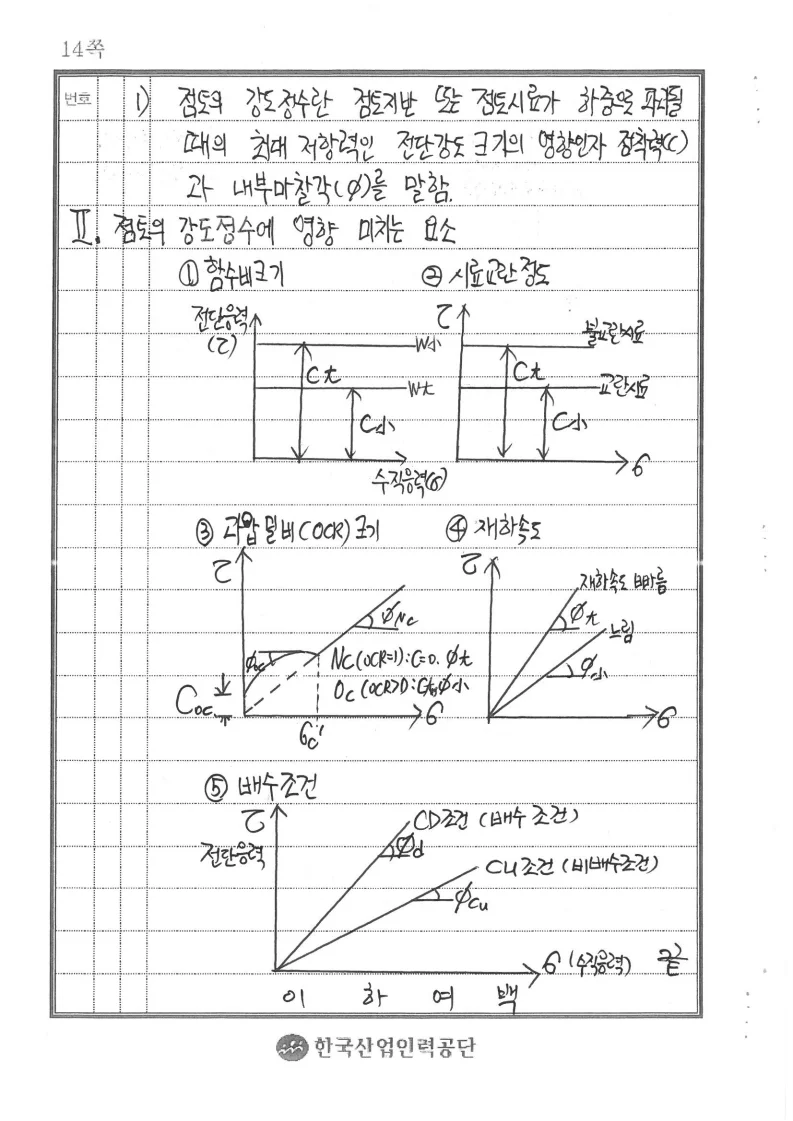 14쪽
번호 1) 점토의 강도정수란 점토지반 또는 점토시료가 하중으로 파괴될
때의 최대 저항력인 전단강도 크기의 영향인자 점착력(C)
과 내부마찰각(∅)를 말함.
Ⅱ. 점토의 강도정수에 영향 미치는 요소
① 함수비크기 ② 시료교란 정도
전단응력 (τ)
W小
C大
W大
C小
수직응력(σ)
τ
불교란시료
C大
교란시료
C小
σ
③ 과압밀비(OCR)크기 ④ 재하속도
τ
∅NC
∅oc
NC(OCR=1):C=0. ∅大
Coc
σc'
σ
τ
재하속도 빠름
∅大
느림
∅小
σ
⑤ 배수조건
τ
전단응력
CD조건 (배수 조건)
∅d
CU조건 (비배수조건)
∅cu
σ (수직응력) 끝
이 하 여 백
한국산업인력공단